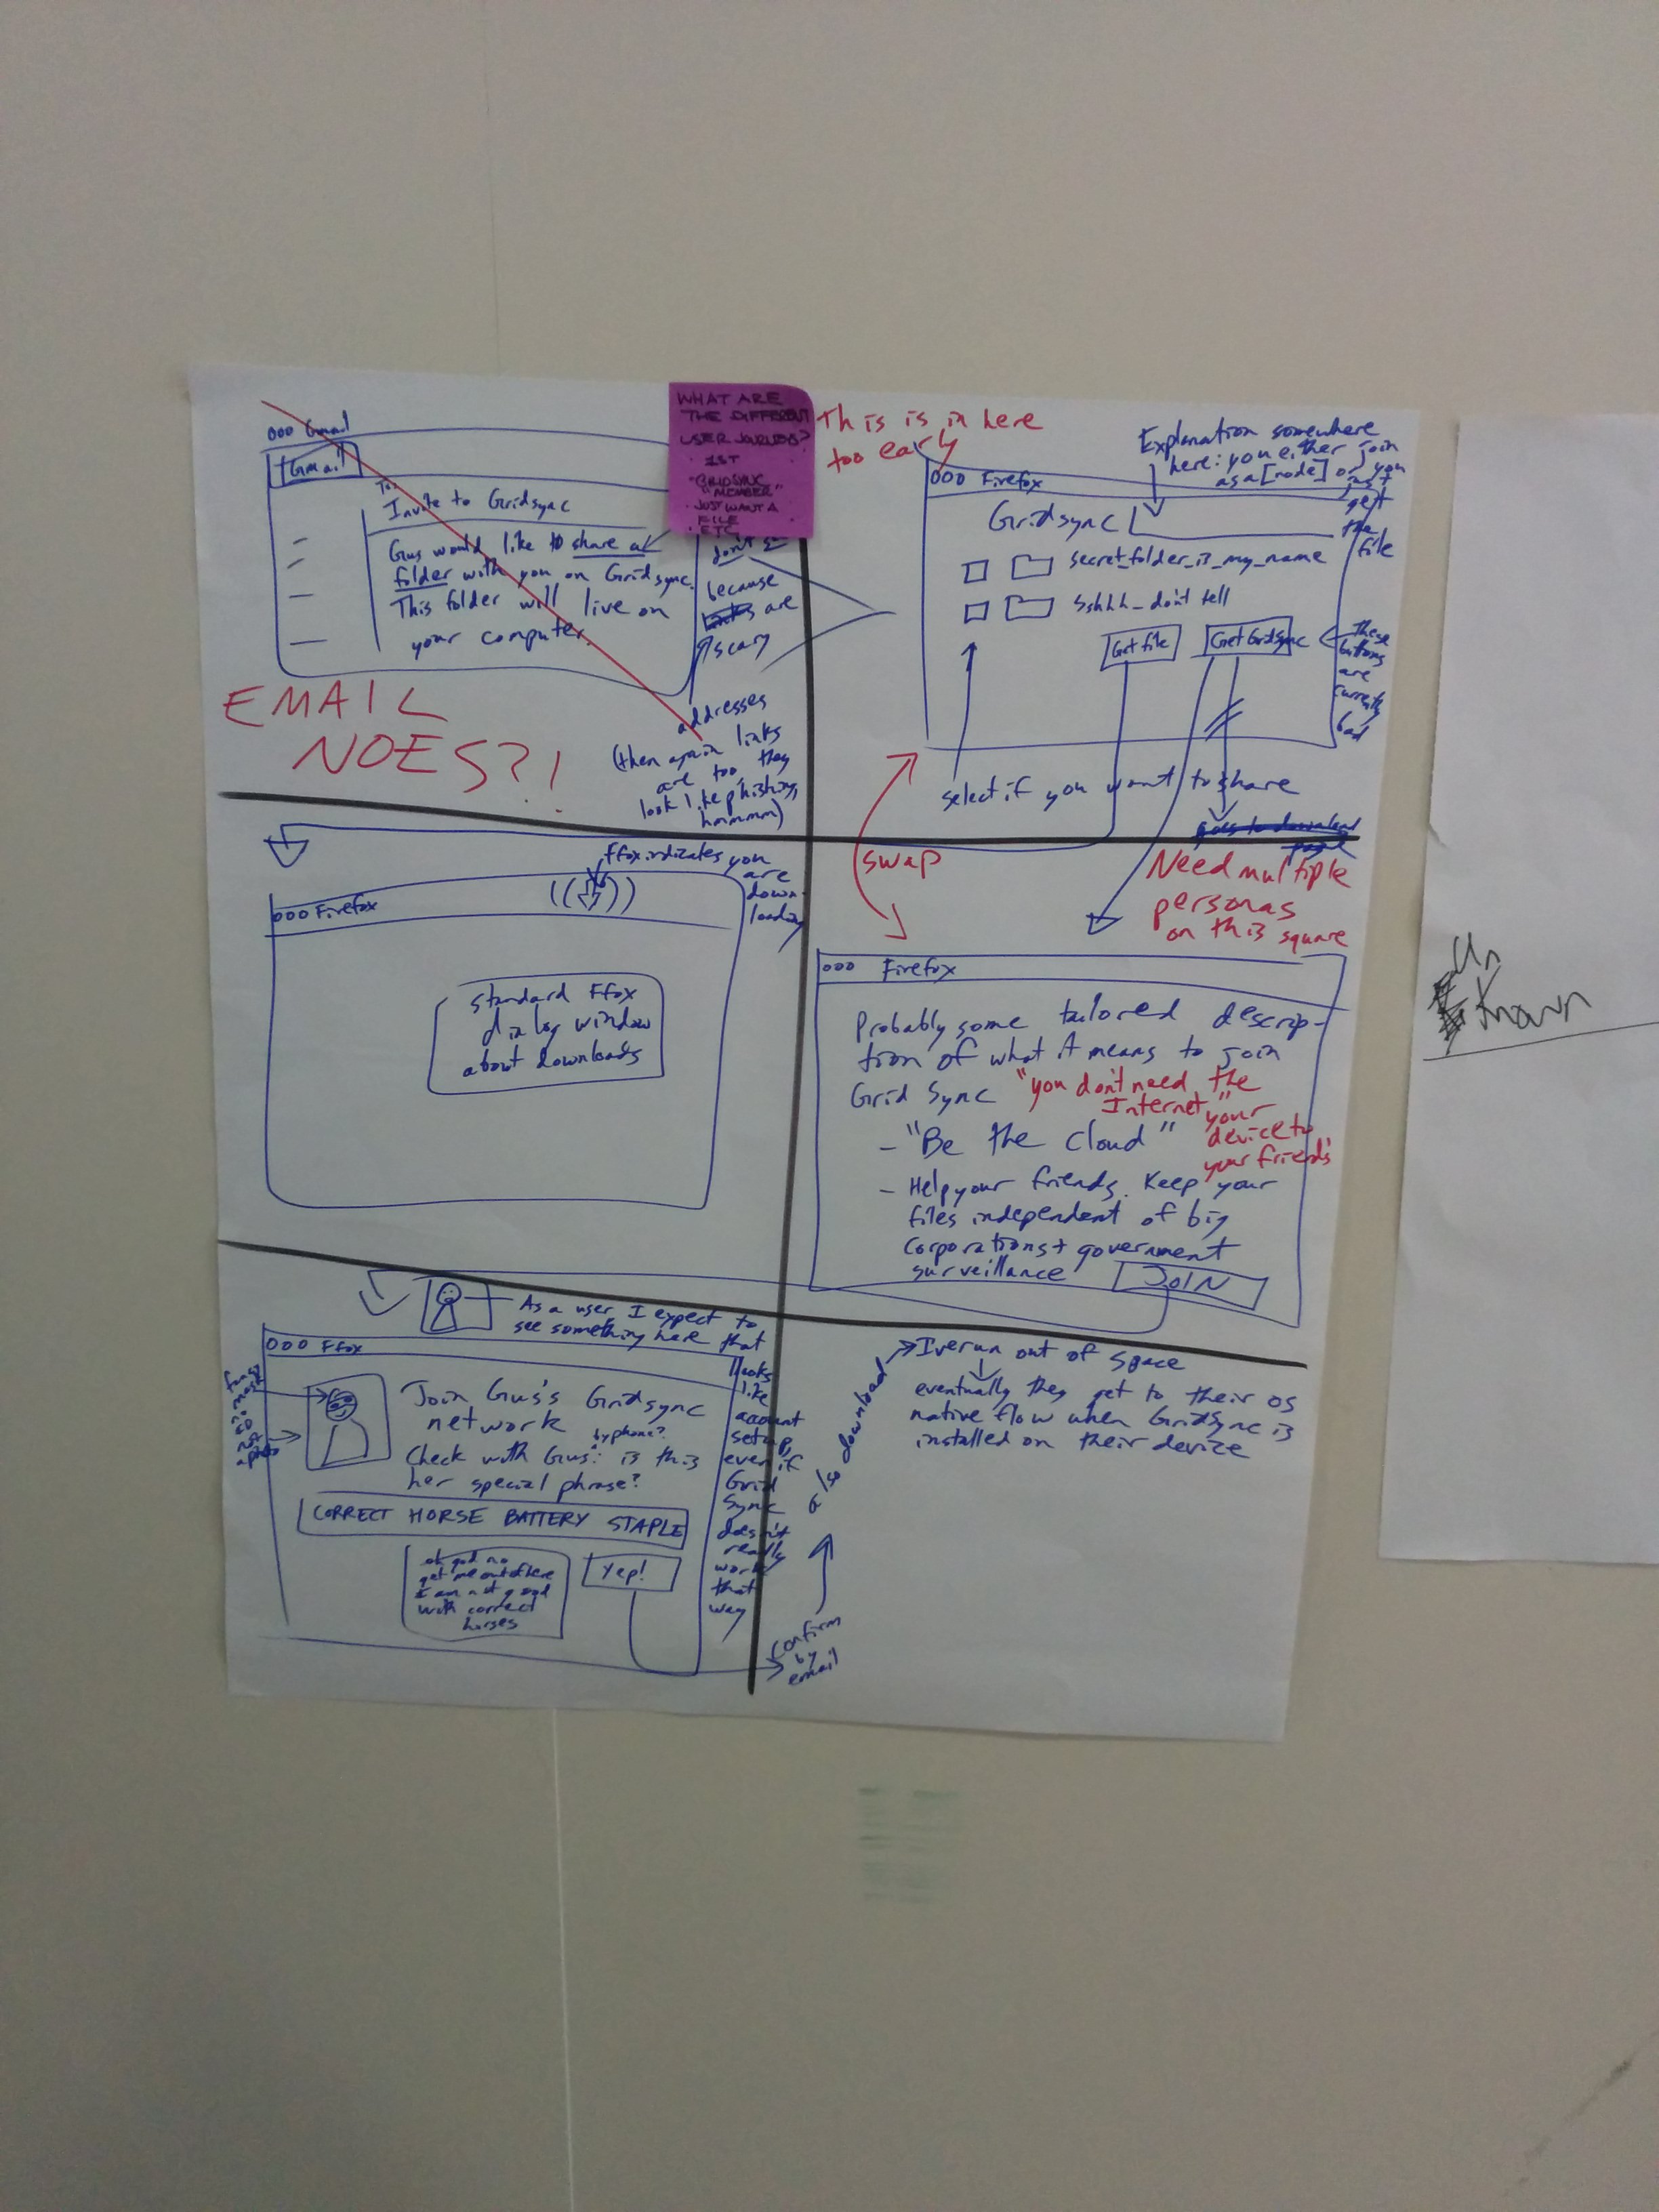 WHAT ARE
THE DIFFERENT
USER
1ST
"GRIDSYNC
"MEMBER"
JUST WANT A
FILE
ETC
ooo Gmail
Gmail
To:
Invite to Gridsync
Gus would like to share a
folder with you on Gridsync.
This folder will live on
your computer.
don't
because
are
scary
addresses
(then again links
are too, they
look like phishing,
hmmmm)
EMAIL
NOES?!
This is in here
too early
Explanation somewhere
here: you either join
as a [node] or you
just
get
the
file
ooo Firefox
Gridsync
secret_folder_is_my_name
Sshhh_don't tell
Get file
Get Gridsync
These
buttons
are
currently
bad
select if you want to share
goes to download
page
swap
Need multiple
personas
on this square
Ffox indicates you
are
down-
loading
ooo Firefox
standard Ffox
dialog window
about downloads
ooo Firefox
Probably some tailored descrip-
tion of what it means to join
Grid Sync
"you don't need the
Internet"
your
device to
your friends'
- "Be the cloud"
- Help your friends. Keep your
files independent of big
corporations + government
surveillance
JOIN
As a user I expect to
see something here that
looks
like
account
setup,
even if
Grid
Sync
doesn't
really
work
that
way
ooo Ffox
Join Gus's Gridsync
network
by phone?
Check with Gus: is this
her special phrase?
CORRECT HORSE BATTERY STAPLE
oh god no
get me out of here
I am not good
with correct
horses
Yep!
Confirm
by
email
also download
I've run out of space
eventually they get to their OS
native flow when GridSync is
installed on their device
Un
known